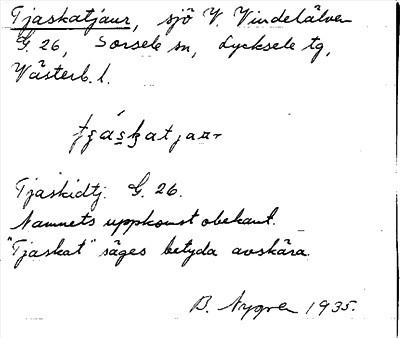 Tjaskatjaur, sjö V. Vindelälven
G. 26, Sorsele sn, Lycksele tg,
Västerb. l.
Tjaskidtj. G. 26.
Namnets uppkomst obekant.
"Tjaskat" säges betyda avskära.
B. Nygren 1935.